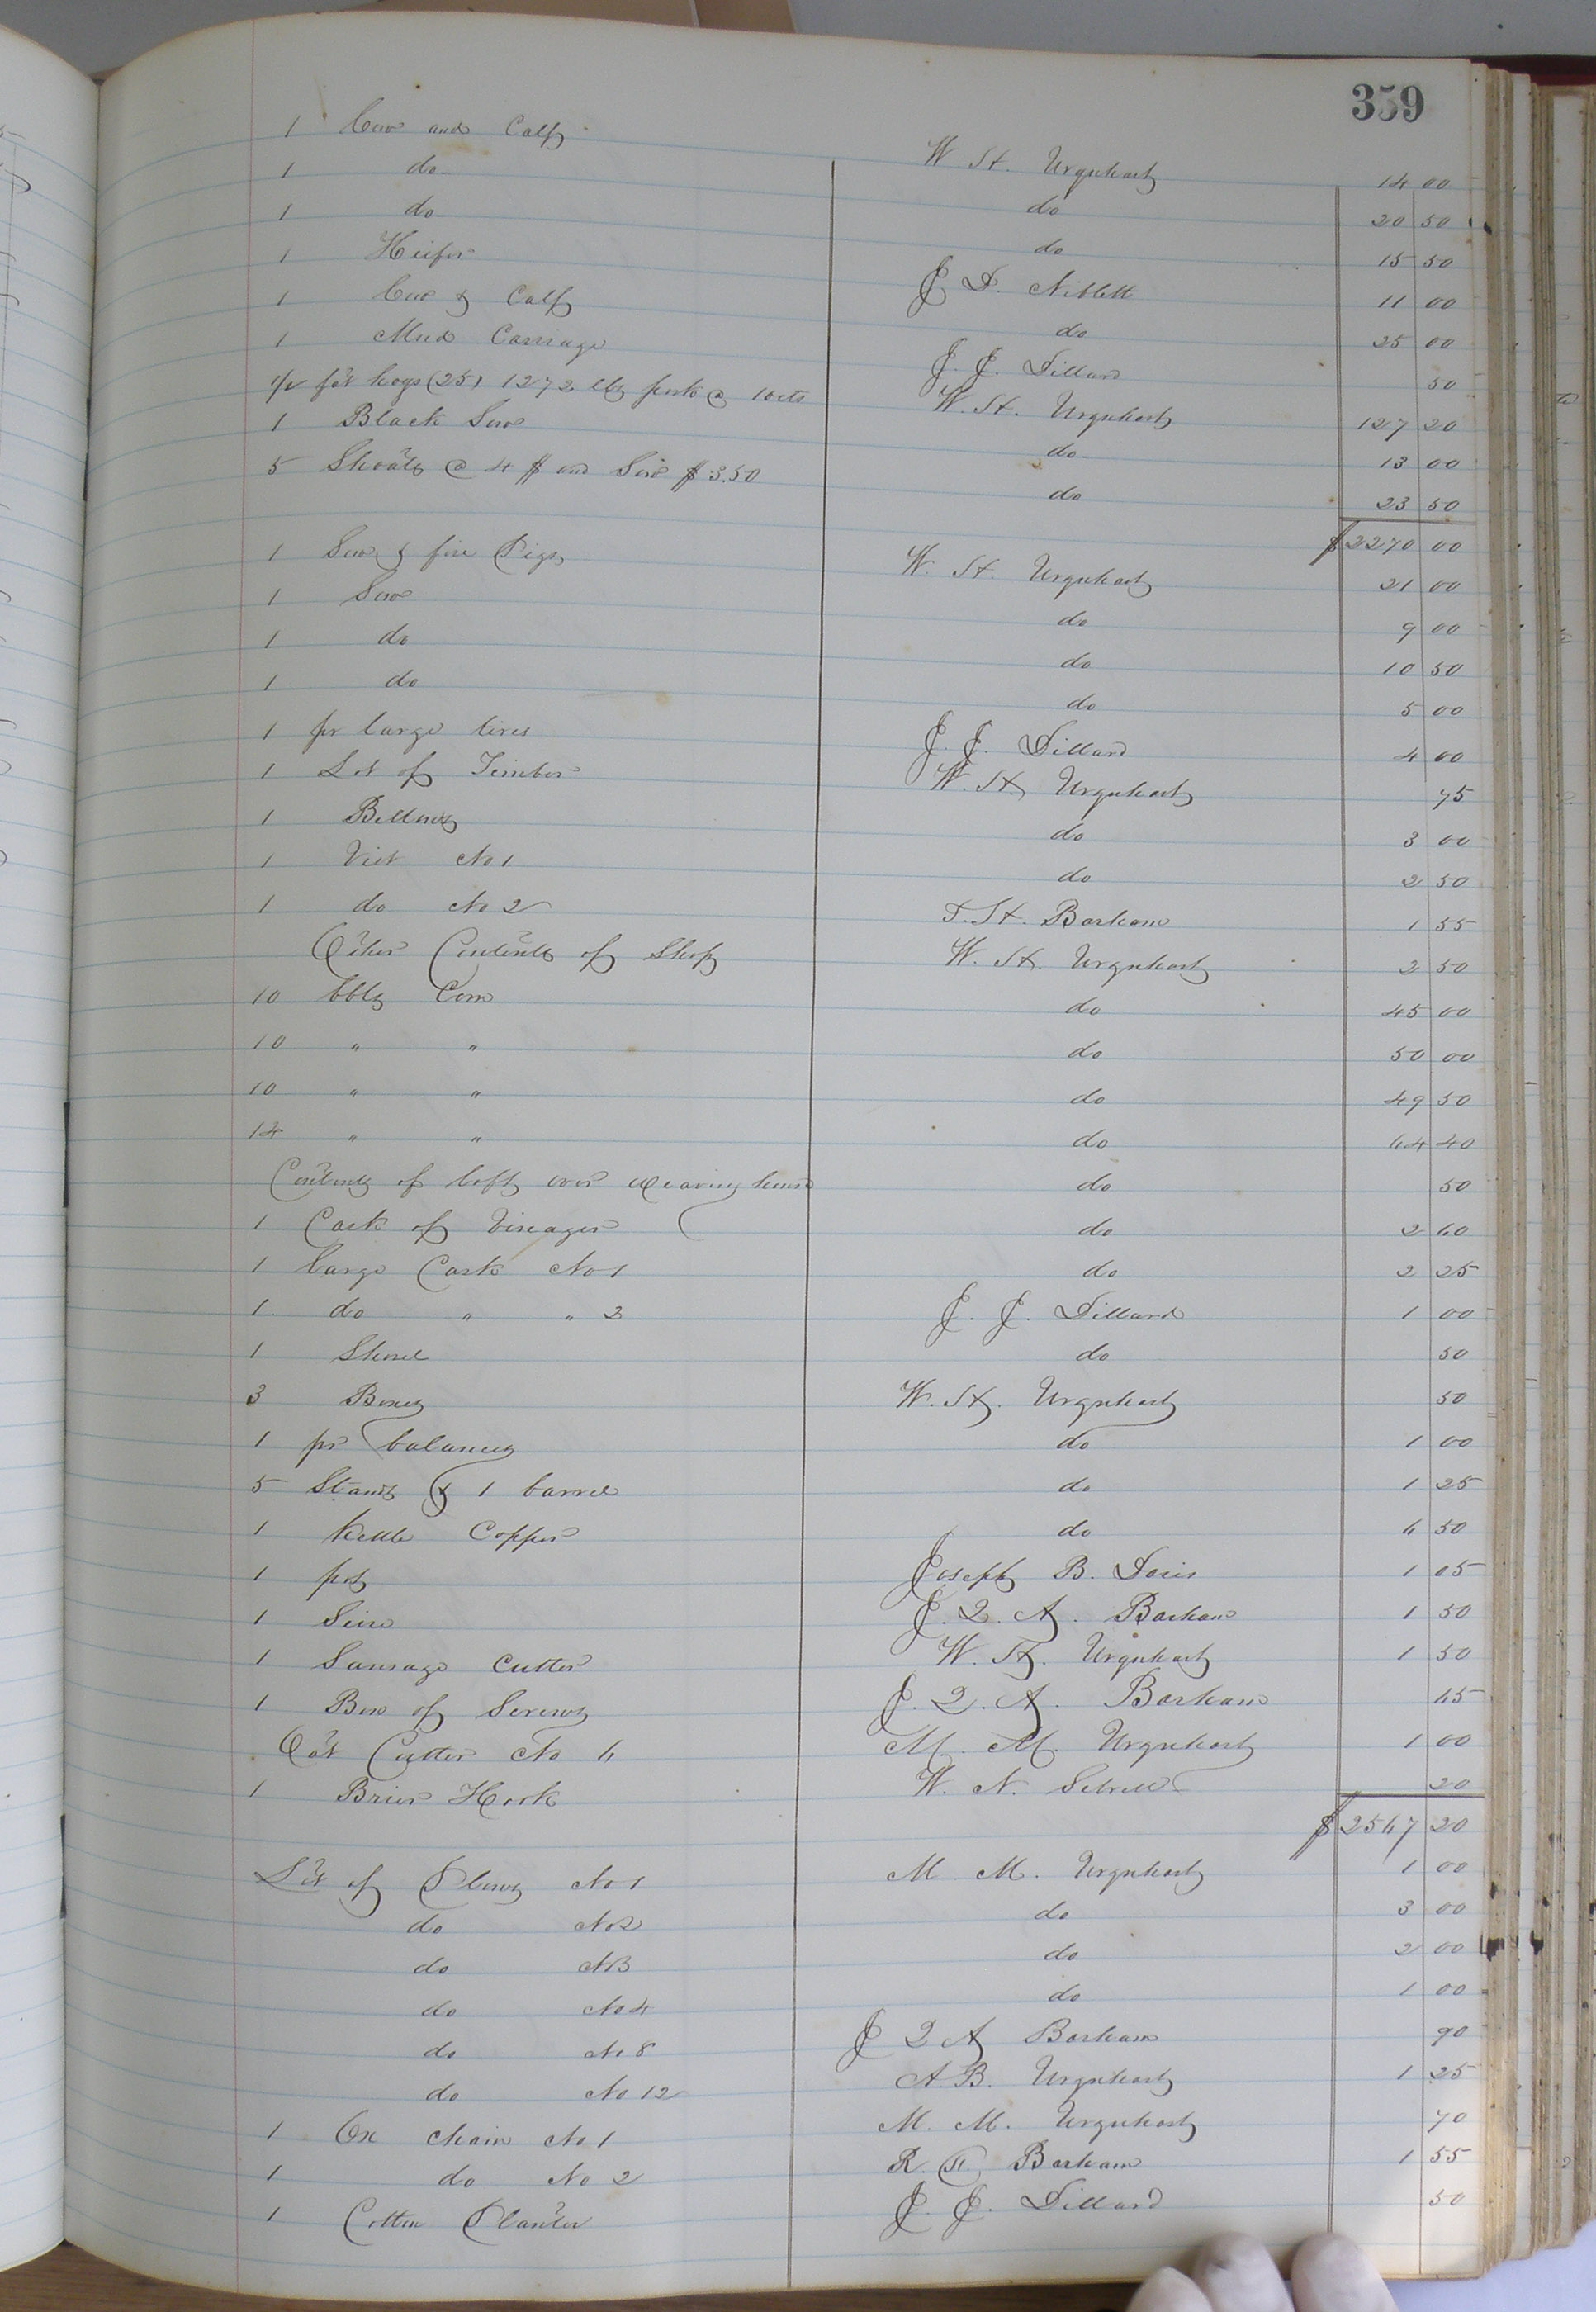 359
1 Cow and Calf W. H. Urquhart 14 00
1 do do 20 50
1 do do 15 50
1 Heifer J. D. Niblett 11 00
1 Cow & Calf do 25 00
1 Mud Carriage J. J. Dillard 50
1/2 fat hogs (25) 1272 lbs pork @ 10cts W. H. Urquhart 127 20
1 Black Sow do 13 00
5 Shoats @ 4 $ and Sow $3.50 do 23 50
$2270 00
1 Sow & five Pigs W. H. Urquhart 21 00
1 Sow do 9 00
1 do do 10 50
1 do do 5 00
1 pr large tires J. J. Dillard 4 00
1 Lot of Timber W. H. Urquhart 75
1 Bellows do 3 00
1 Vice No 1 do 2 50
1 do No 2 T. H. Barham 1 55
Other Contents of Shop W. H. Urquhart 2 50
10 bbls Corn do 45 00
10 " " do 50 00
10 " " do 49 50
14 " " do 64 40
Contents of loft over weaving house do 50
1 Cask of Vinegar do 2 60
1 large Cask No 1 do 2 25
1 do " " 2 J. J. Dillard 1 00
1 Shovel do 50
3 Boxes W. H. Urquhart 50
1 pr balances do 1 00
5 Stands & 1 barrel do 1 25
1 Kettle Copper do 6 50
1 pot Joseph B. Davis 1 05
1 J. Q. A. Barham 1 50
1 Sausage Cutter W. H. Urquhart 1 50
1 Box of Screws J. Q. A. Barham 65
Oat Cutter No 6 M. M. Urquhart 1 00
1 Brier Hook W. N. Sebrell 20
$2567 20
Lot of Plows No 1 M. M. Urquhart 1 00
do No 2 do 3 00
do No 3 do 2 00
do No 4 do 1 00
do No 8 J Q A Barham 90
do No 12 A. B. Urquhart 1 25
1 Ox chain No 1 M. M. Urquhart 70
1 do No 2 R. Barham 1 55
1 Cotton Planter J. J. Dillard 50